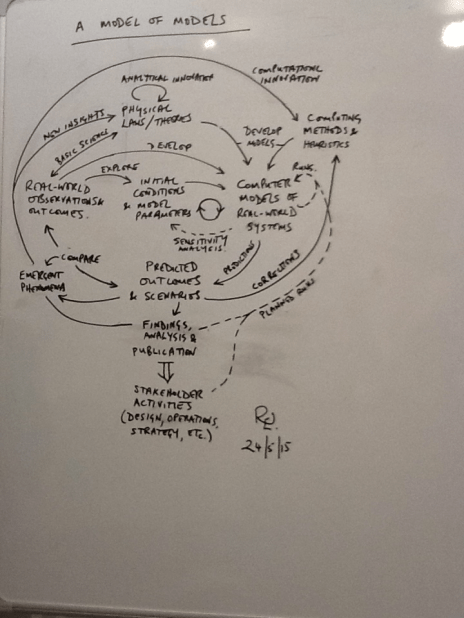 A MODEL OF MODELS
ANALYTICAL INNOVATION
COMPUTATIONAL
INNOVATION
NEW INSIGHTS
PHYSICAL
LAWS/THEORIES
COMPUTING
METHODS &
HEURISTICS
BASIC SCIENCE
DEVELOP
MODELS
DEVELOP
EXPLORE
RUNS
REAL-WORLD
OBSERVATIONS &
OUTCOMES.
INITIAL
CONDITIONS
& MODEL
PARAMETERS
COMPUTER
MODELS OF
REAL-WORLD
SYSTEMS
SENSITIVITY
ANALYSIS
COMPARE
PREDICTIONS
EMERGENT
PHENOMENA
PREDICTED
OUTCOMES
& SCENARIOS
CORRECTIONS
PLANNED RUNS
FINDINGS,
ANALYSIS &
PUBLICATION
STAKEHOLDER
ACTIVITIES
(DESIGN, OPERATIONS,
STRATEGY, ETC.)
24/5/15